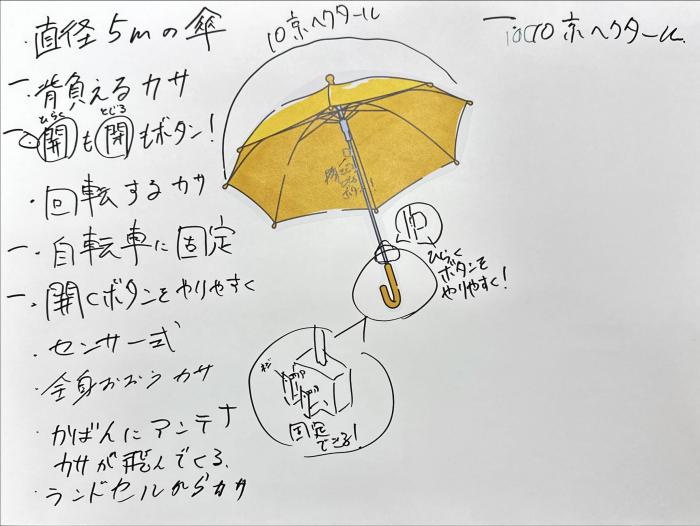 ・直径5mの傘
一・背負えるカサ
ひらく とじる
一・開も閉もボタン!
・回転するカサ
一・自転車に固定
一・開くボタンをやりやすく
・センサー式
・全身おおうカサ
・かばんにアンテナ
カサが飛んでくる。
・ランドセルからカサ
10京ヘクタール
10京ヘクタール
ボタン!
ひらく
ボタンを
やりやすく!
固定
できる!